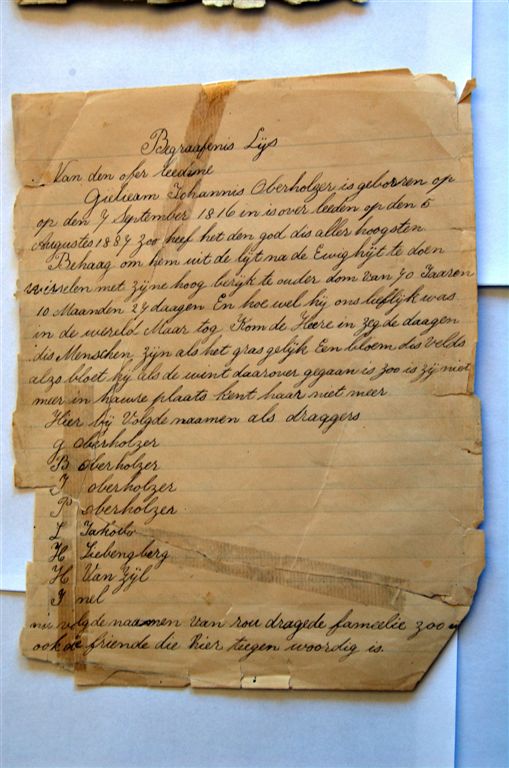 Begraafenis Lijs
Van den ofer leedene
Gielieam Johannis Oberholzer is geborren op
op den 7 September 1816 in is over leeden op den 5
Augustes 1887 zoo heef het den god dis aller hoogsten
Behaag om hem uit de tijt na de Ewig hijt te doen
wisselen met zijne hoog berijk te ouder dom van 70 Jaaren
10 Maanden 27 daagen En hoe wel hij ons lieflijk was
in de wereld Maar tog Kom de Heere in zeg de daagen
dis Menschen zijn als het gras gelijk Een bloem dis velds
alzo bloet hij als de wint daarover gegaan is zoo is zij niet
meer in hauwe plaats kent haar niet meer
Hier bij Volgde naamen als draggers
G oberholzer
B oberholzer
J oberholzer
P oberholzer
L Jakobs
H Liebengberg
H Van Zijl
J nel
nu volgde naamen van rou dragede fameelie zoo
ook de friende die hier teegen woordig is.